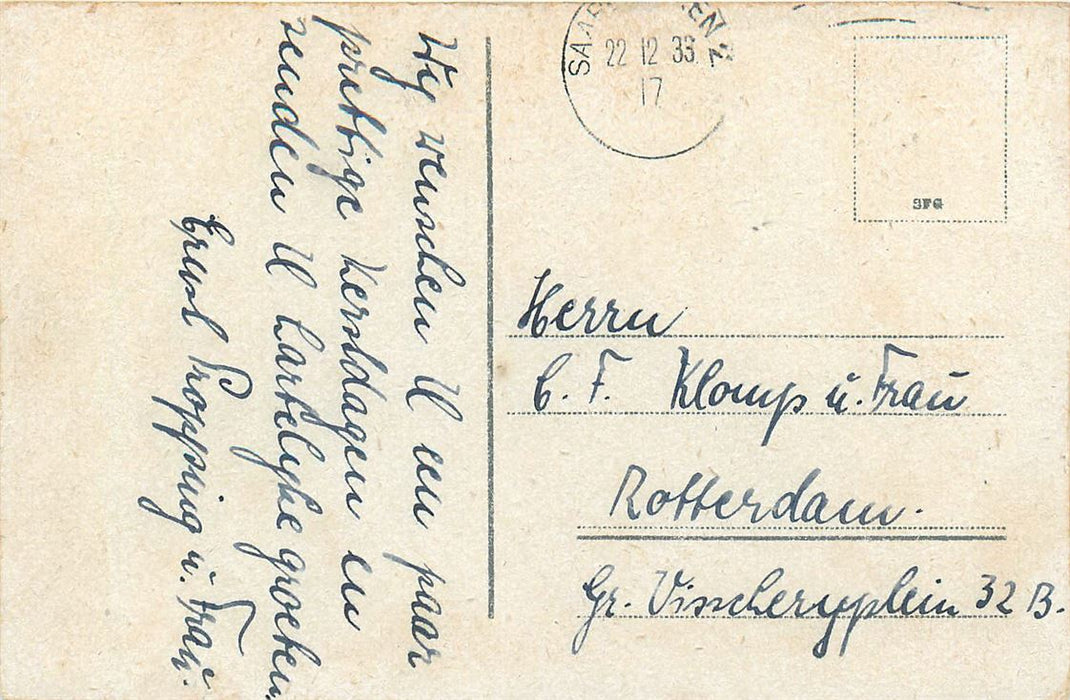 Wij wenschen U een paar
prettige Kerstdagen en
zenden U hartelijke groeten
Ernst Propping u. Frau.
22 12 33
17
SFG
Herrn
C. F. Klomp u. Frau
Rotterdam.
Gr. Visscherijplein 32 B.